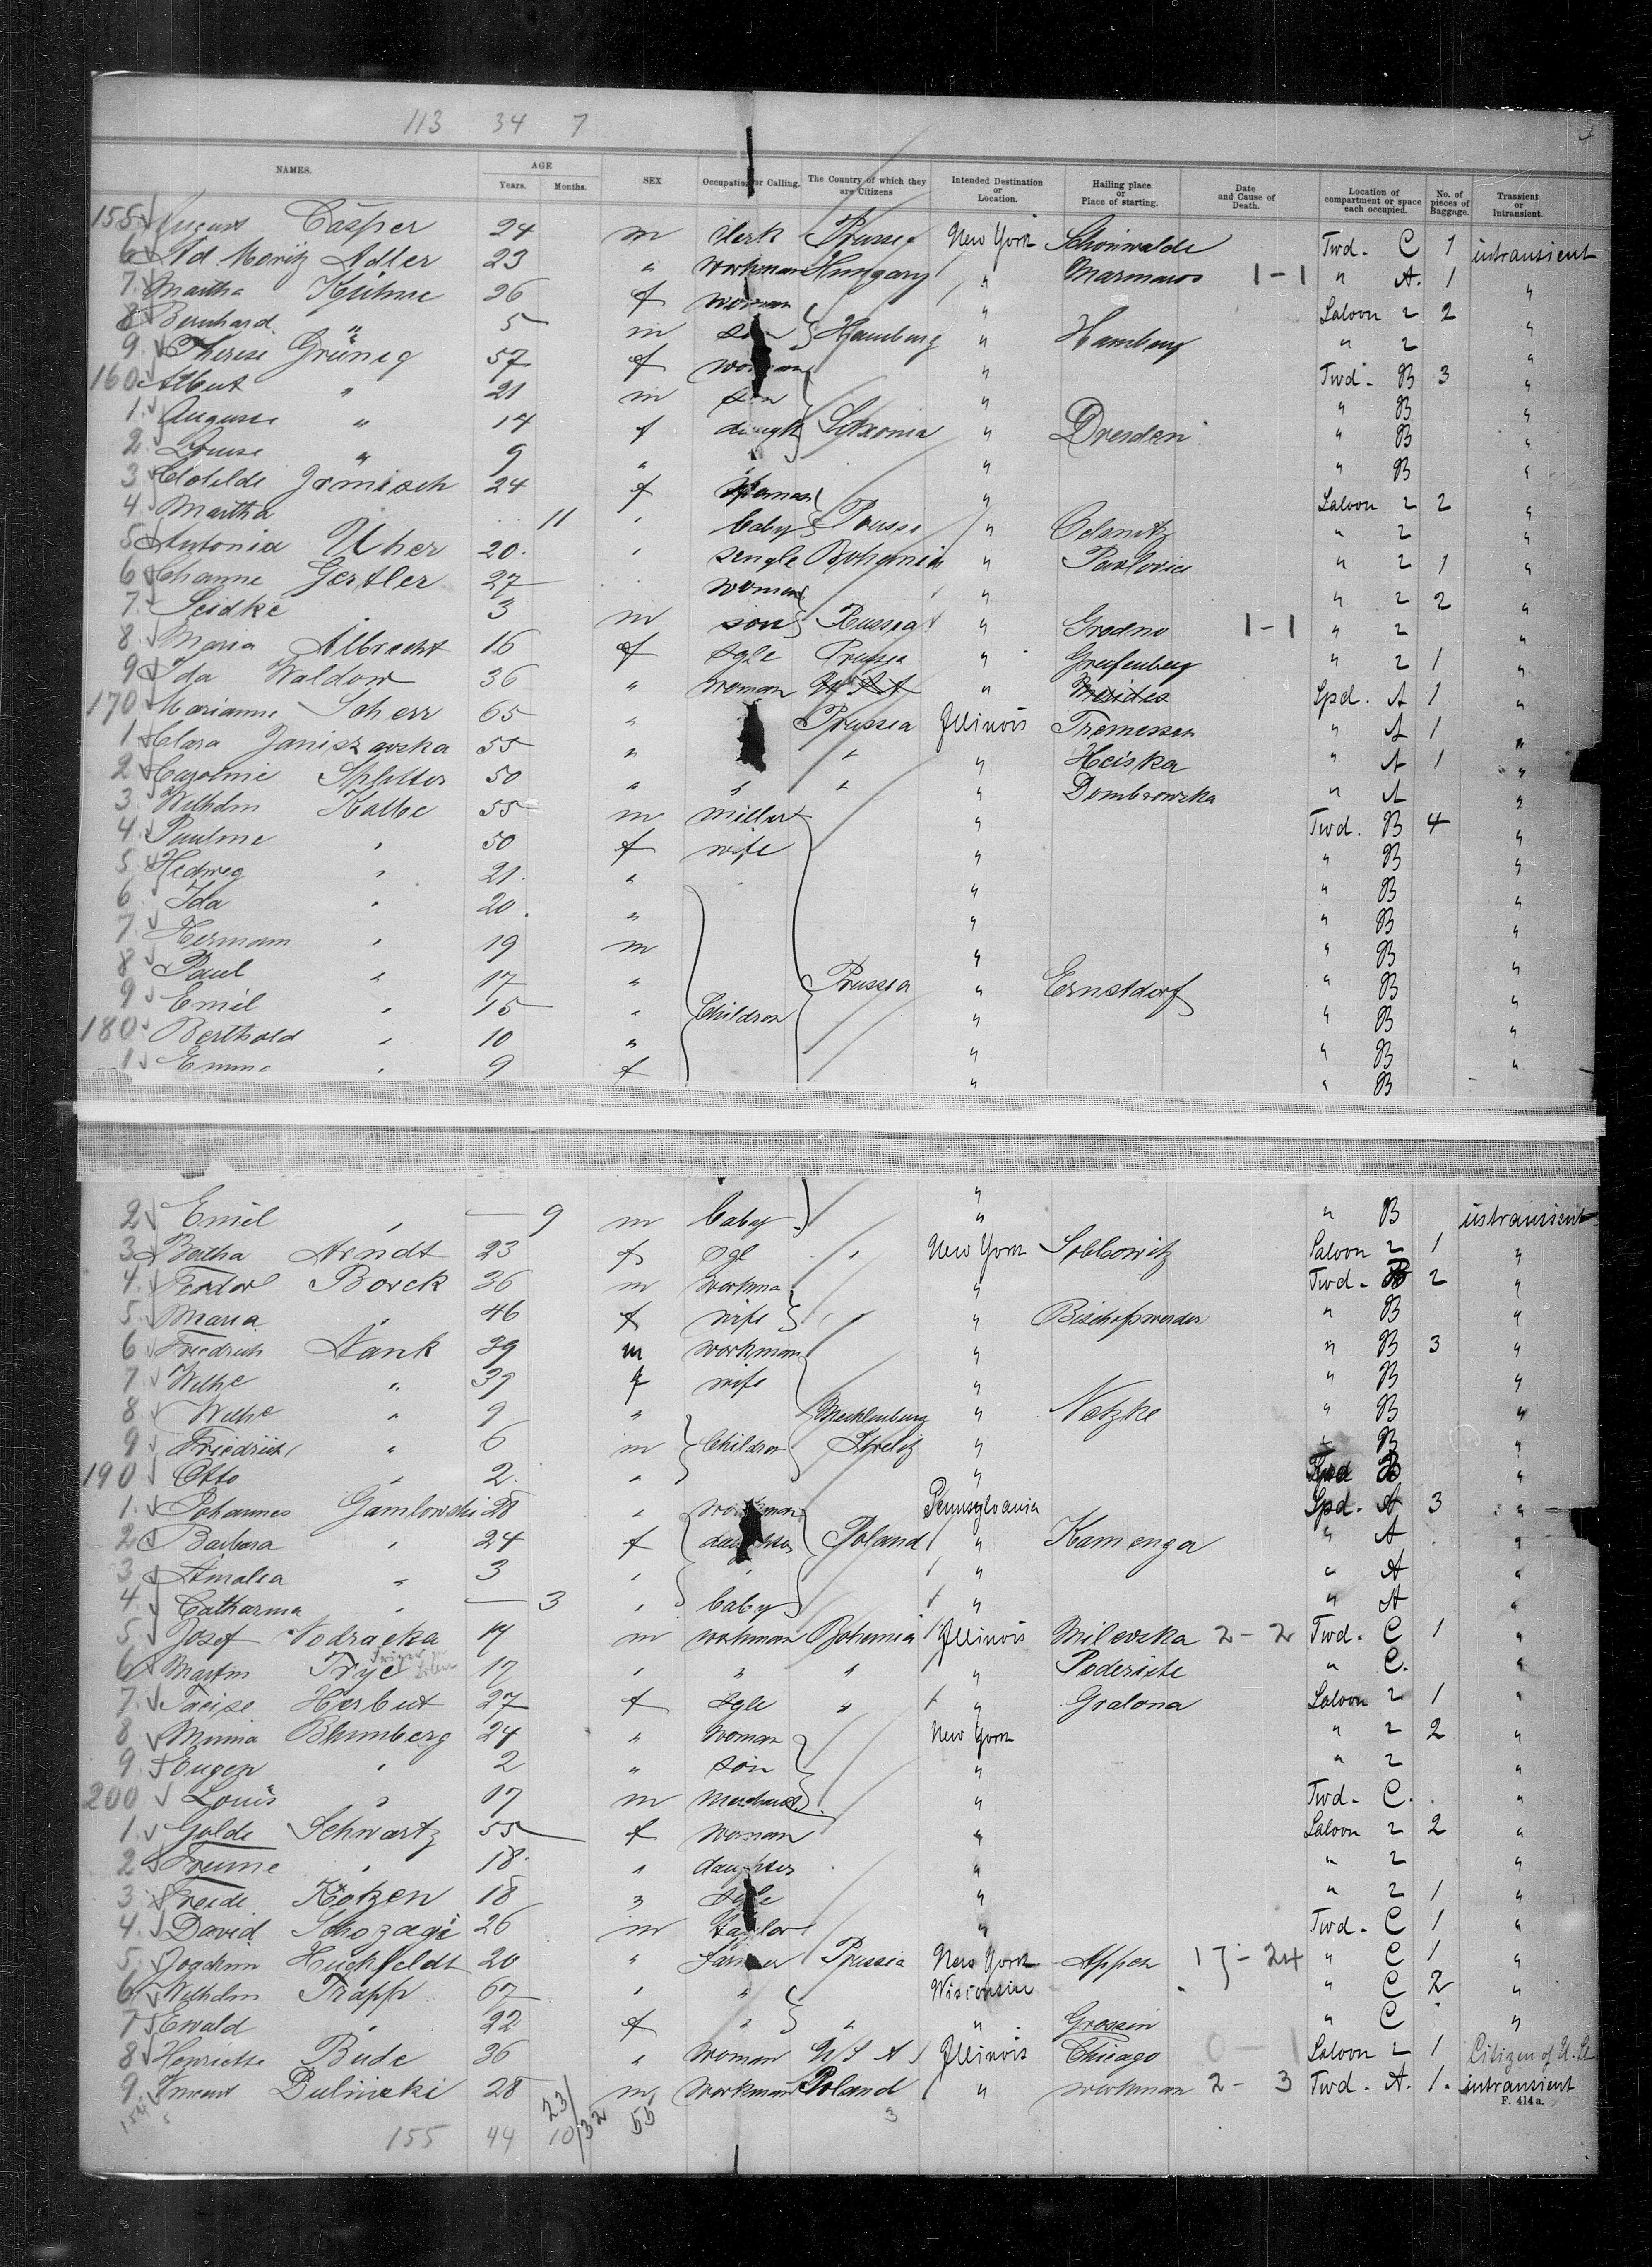 113 34 7 4
NAMES. AGE Years. Months. SEX Occupation or Calling. The Country of which they are Citizens Intended Destination or Location. Hailing place or Place of starting. Date and Cause of Death. Location of compartment or space each occupied. No. of pieces of Baggage. Transient or Intransient.
155 August Casper 24 m clerk Prussia New York Schönwalde Twd. C 1 intransient
6 Ad Moritz Adler 23 " workman Hungary " Marmaros 1-1 " A. 1 "
7. Martha Kühne 26 f woman " Saloon 2 2 "
8 Bernhard " 5 m son Hamburg " Hamburg " 2 "
9. Therese Grünig 57 f woman " Twd. B 3 "
160 Albert " 21 m son " " B "
1. Auguste " 14 f daught Saxonia " Dresden " B "
2. Louise " 9 " " " " B "
3 Clotilde Jrmisch 24 f woman " Saloon 2 2 "
4. Martha 11 " baby Prussi " Oelsnitz " 2 "
5 Antonia Uher 20. " single Bohemia " Pavlovice " 2 1 "
6 Channe Gertler 27 woman " " 2 2 "
7. Seidke 3 m son Russia " Grodno 1-1 " 2 "
8 Maria Albrecht 16 f sgle Prussia " Greifenberg " 2 1 "
9 Ida Waldow 36 " woman " Spd. A 1 "
170 Marianne Scherr 65 " Prussia Illinois Tremessen " A 1 "
1 Clara Janiszewska 55 " " " Heiska " A 1 "
2 Caroline 50 " " " " Dombrowska " A "
3. Wilhelm Kalbe 55 m miller " Twd. B 4 "
4. Pauline " 50 f wife " " B "
5. Hedwig " 21. " " " B "
6. Ida " 20. " " " B "
7. Hermann " 19 m " " B "
8 Paul " 17 " Prussia " Ernstdorf " B "
9 Emil " 15 " Children " " B "
180 Berthold " 10 " " " B "
1 Emma " 9 f " " B
2 Emil " — 9 m baby " " B intransient
3 Bertha Arndt 23 f sgl " New York Sobbowitz Saloon 2 1 "
4. Teodor Borck 36 m workma " Twd. B 2 "
5. Maria " 46 f wife " " Bischofswerder " B "
6 Friedrich Nank 39 m workman " " B 3 "
7. Wilhe " 39 f wife " " B "
8 Wilhe " 9 " Mecklenburg " Netzke " B "
9 Friedrich " 6 m Children Strelitz " " B "
190 Otto " 2. " " Twd B "
1. Johannes Gamlowski 28 " workman Pennsylvania Spd. A 3 "
2 Barbara " 24 f daughter Poland " Kamenga " A "
3 Amalia " 3 " " " " A "
4. Catharina " — 3 " baby " " A "
5. Josef Vodracka 17 m workman Bohemia Illinois Milevska 2-2 Twd. C 1 "
6 Martin 17 " " " " " C. "
7. Herbut 27 f sgle " " Gralona Saloon 2 1 "
8 Minna Blumberg 24 " woman New York " 2 2 "
9. Eugen " 2 " son " " 2 "
200 Louis " 17 m merchant " Twd. C. "
1. Golde Schwartz 55 f woman " Saloon 2 2 "
2 Freime " 18 " daughter " " 2 "
3. Freide Kotzen 18 " sgle " " 2 1 "
4. David 26 m taylor " Twd. C 1 "
5. Joachim Huckfeldt 20 " farmer Prussia New York Appen 17-24 " C 1 "
6 Wilhelm Trapp 67 " " Wisconsin " C 2 "
7 Ewald " 22 f " " " Grossin " C "
8 Henriette Bude 36 " woman U S A Illinois Chicago 0-1 Saloon 2 1 Citizen of U. St
9. Vincent Dulinski 28 m workman Poland " workman 2-3 Twd. A. 1. intransient
F. 414a.
155 44 23/10/32 55 3